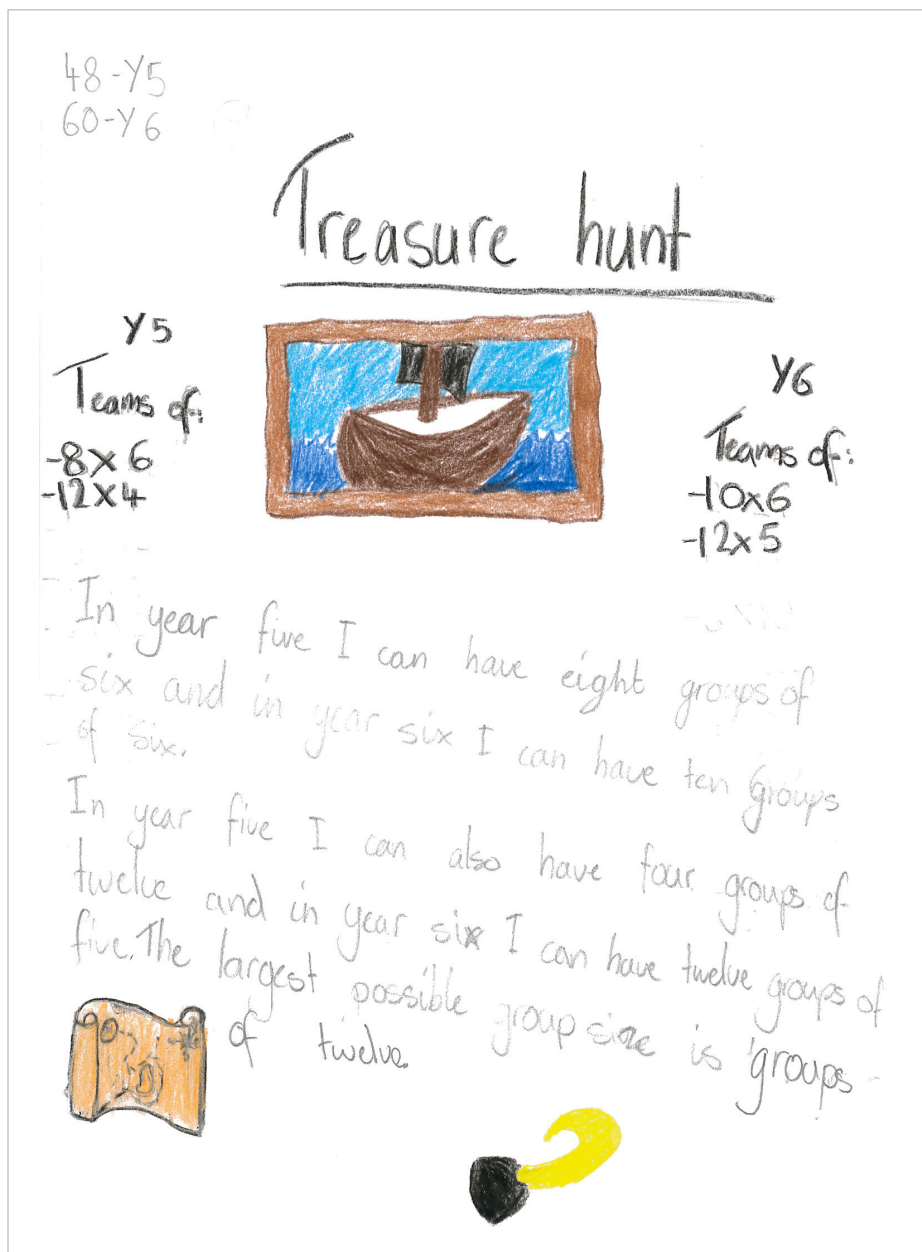 48-Y5
60-Y6
Treasure hunt
Y5
Teams of:
-8x6
-12x4
Y6
Teams of:
-10x6
-12x5
In year five I can have eight groups of
six and in year six I can have ten groups
of six.
In year five I can also have four groups of
twelve and in year six I can have twelve groups of
five. The largest possible group size is groups
of twelve.